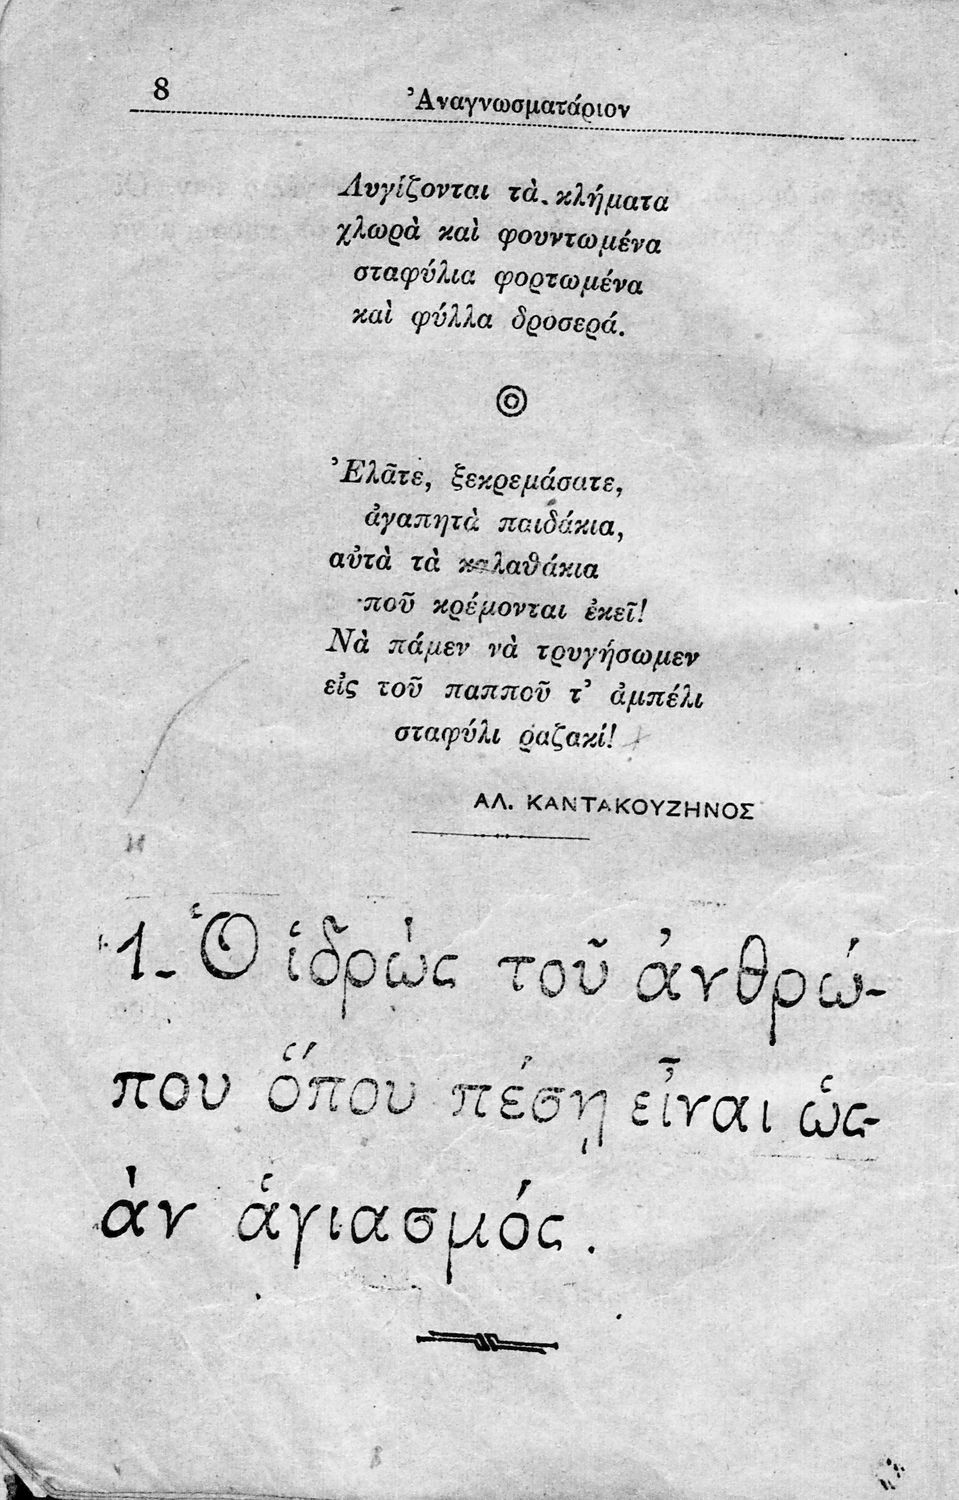 8
Ἀναγνωσματάριον
Λυγίζονται τὰ κλήματα
χλωρὰ καὶ φουντωμένα
σταφύλια φορτωμένα
καὶ φύλλα δροσερά.
Ἐλᾶτε, ξεκρεμάσατε,
ἀγαπητὰ παιδάκια,
αὐτὰ τὰ καλαθάκια
ποῦ κρέμονται ἐκεῖ!
Νὰ πάμεν νὰ τρυγήσωμεν
εἰς τοῦ παπποῦ τ' ἀμπέλι
σταφύλι ραζακί!
ΑΛ. ΚΑΝΤΑΚΟΥΖΗΝΟΣ
1- Ὁ ἱδρὼς τοῦ ἀνθρώ-
που ὅπου πέσῃ εἶναι ὡς-
ὰν ἁγιασμός.